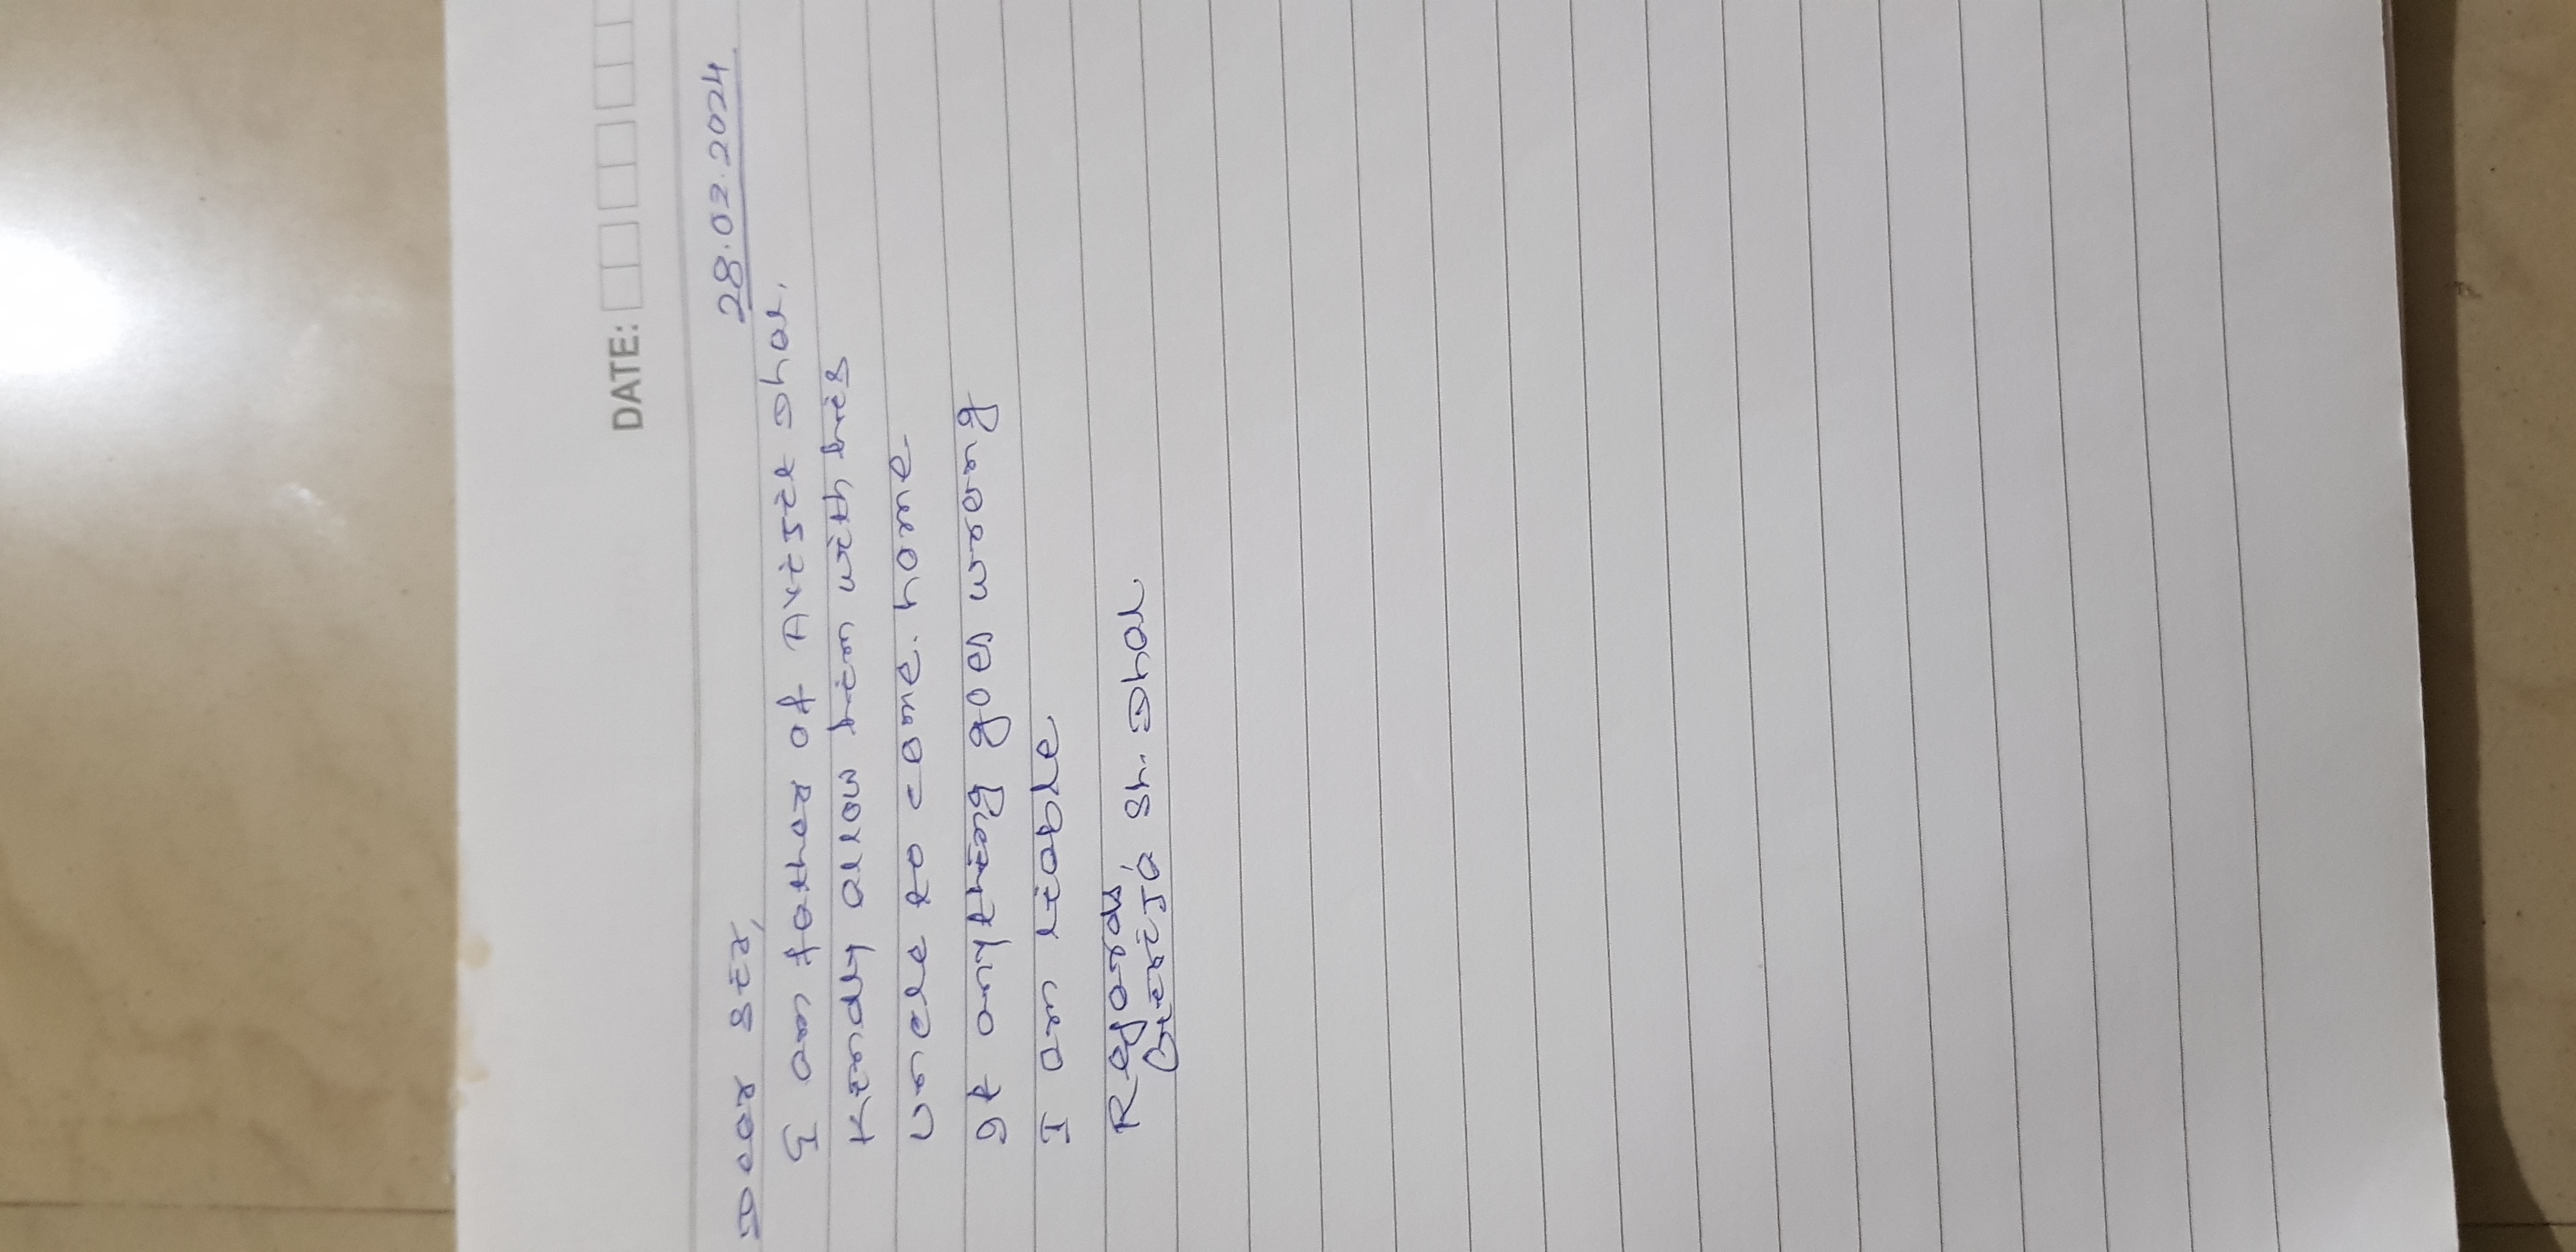 DATE:
28.02.2024
Dear Sir,
I am father of Avisek Dhar.
Kindly allow him with his
uncle to come home
If anything goes wrong
I am liable
Regards
Sh. Dhar